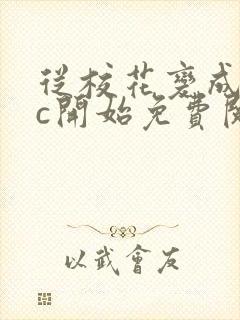 從校花變成
c開始免費閱
以武會友